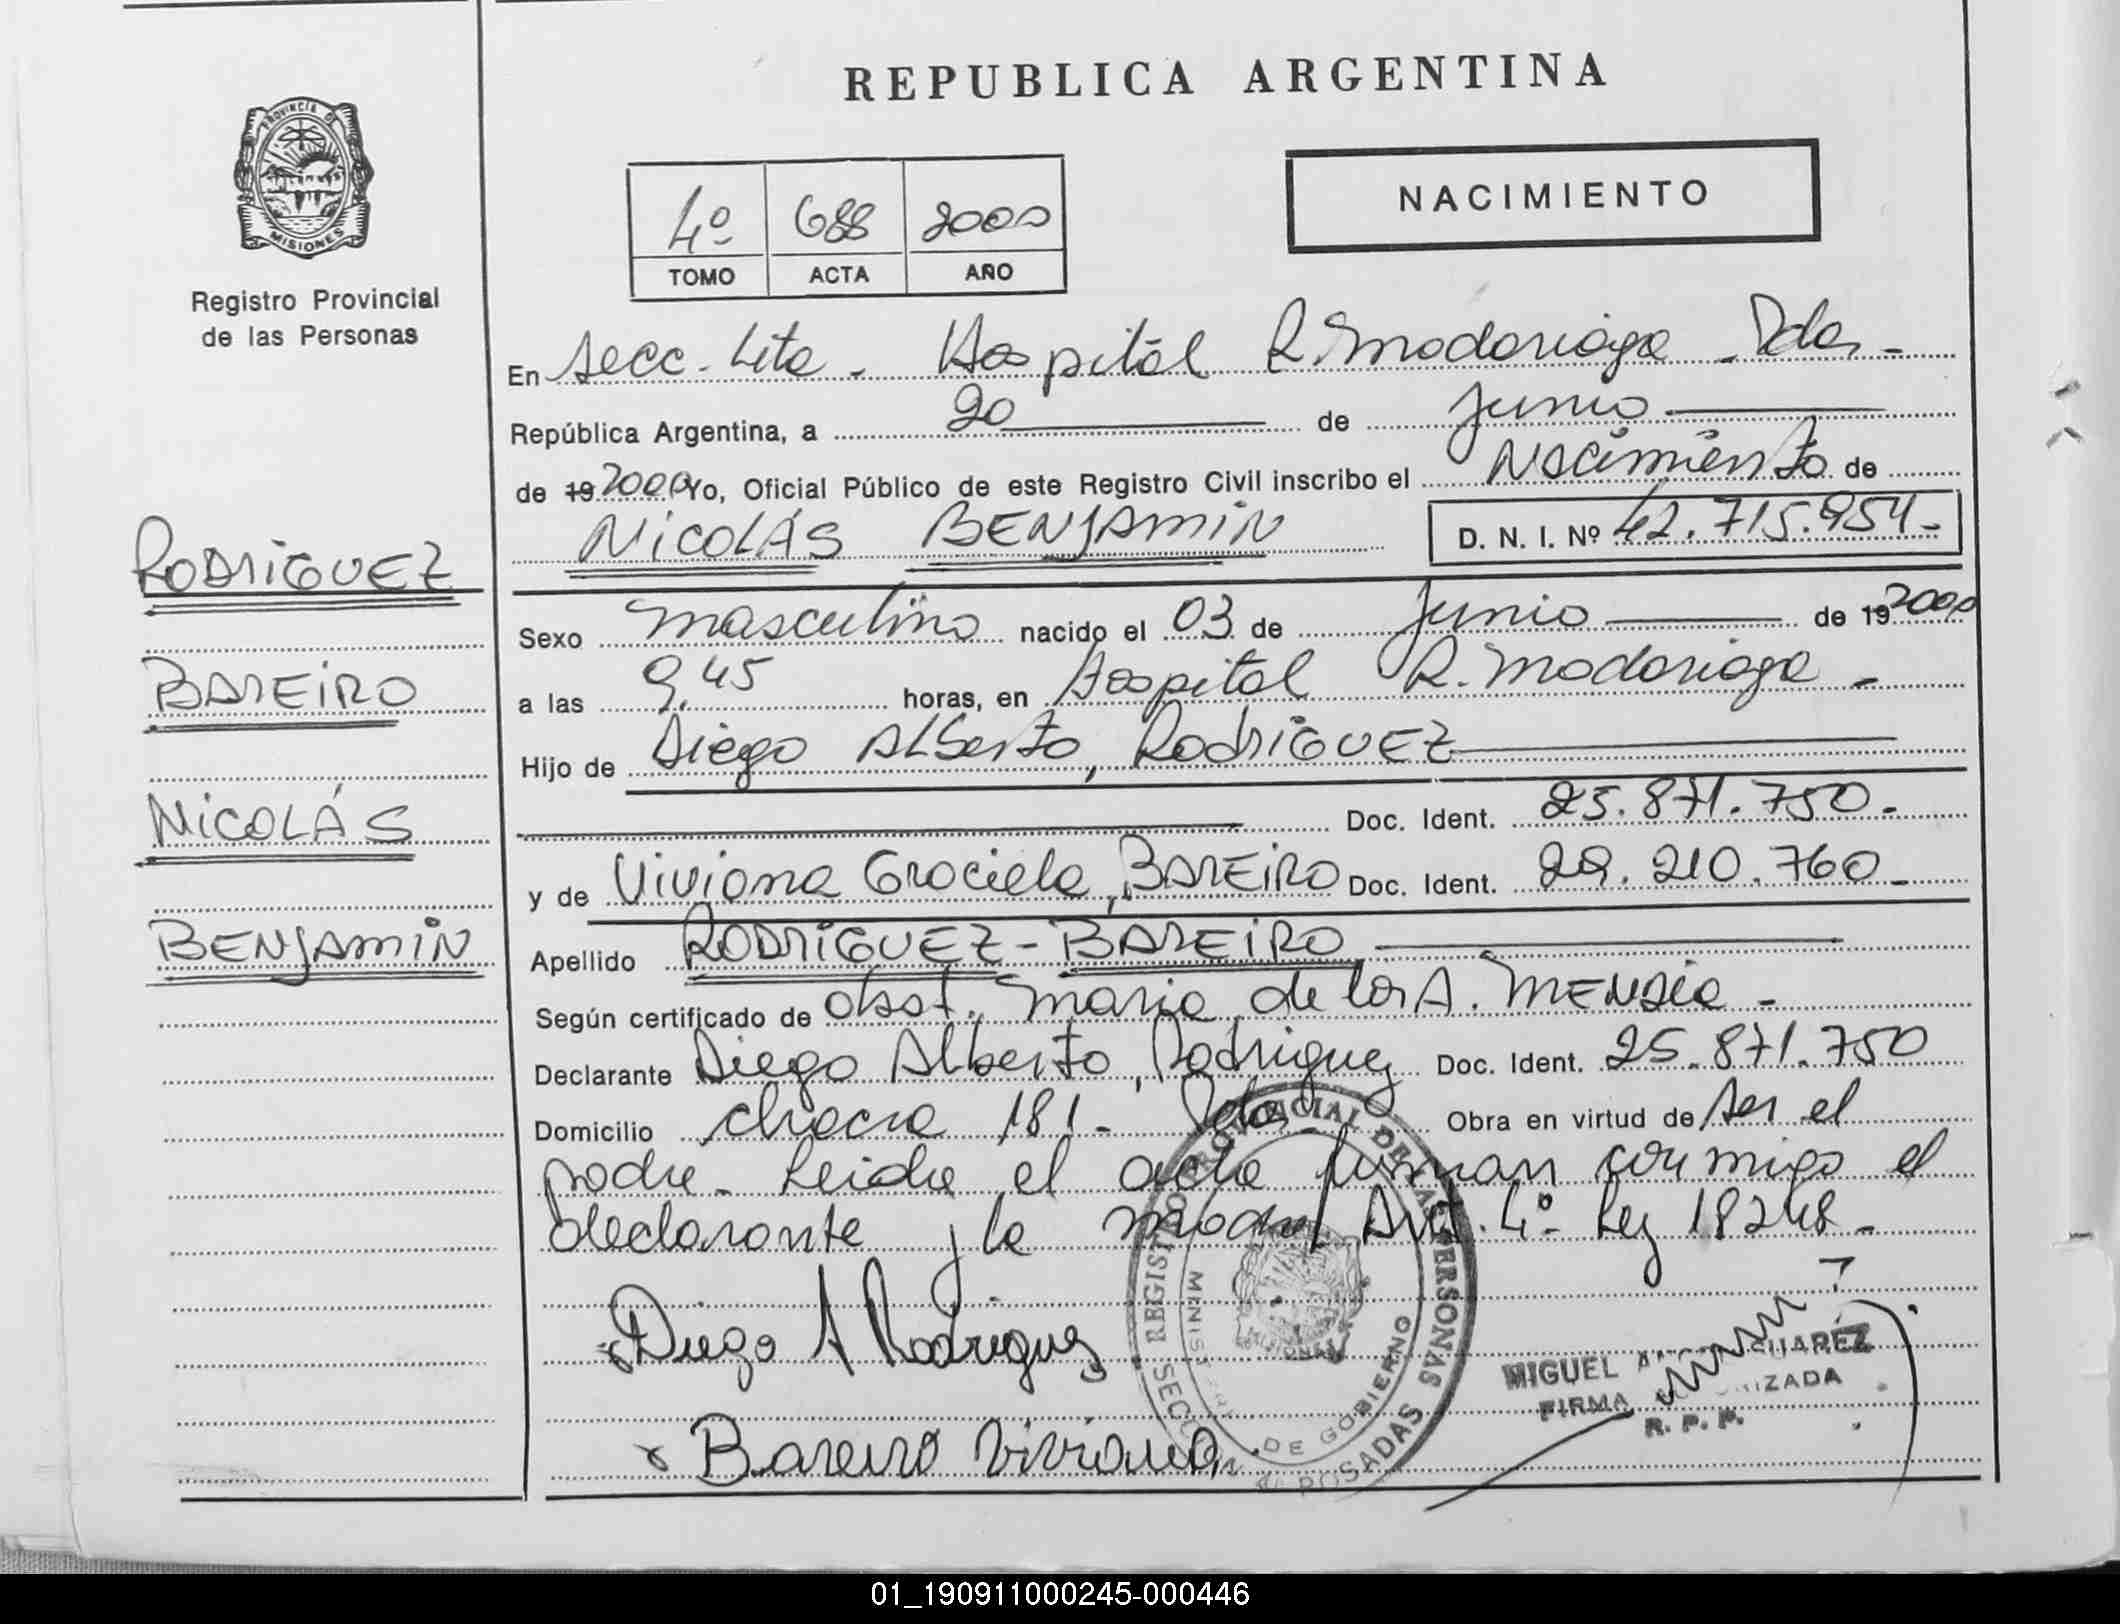 REPUBLICA ARGENTINA
PROVINCIA DE
MISIONES
Registro Provincial
de las Personas
NACIMIENTO
4º 688 2000
TOMO ACTA AÑO
En secc. 4ta. Hospital R. Madariaga - Pdas -
República Argentina, a 20 de Junio
de 19 2000 Yo, Oficial Público de este Registro Civil inscribo el Nacimiento de
NICOLÁS BENJAMIN D. N. I. Nº 42.715.954-
RODRIGUEZ
BAREIRO
NICOLÁS
BENJAMIN
Sexo masculino nacido el 03 de Junio de 19 2000
a las 9,45 horas, en Hospital R. Madariaga -
Hijo de Diego Alberto, RODRIGUEZ
Doc. Ident. 25.871.750.-
y de Viviana Graciela, BAREIRO Doc. Ident. 29.210.760-
Apellido RODRIGUEZ - BAREIRO
Según certificado de obst. Maria de los A. -
Declarante Diego Alberto, Rodriguez Doc. Ident. 25.871.750
Domicilio chacra 181 - Pdas Obra en virtud de ser el
padre - Leida el acta firman conmigo el
declarante y la madre Art. 4º Ley 18248 -
Diego A Rodriguez
Bareiro Viviana
REGISTRO PROVINCIAL DE LAS PERSONAS
DE GOBIERNO
POSADAS
MIGUEL SUAREZ
FIRMA
R. P. P.
01_190911000245-000446